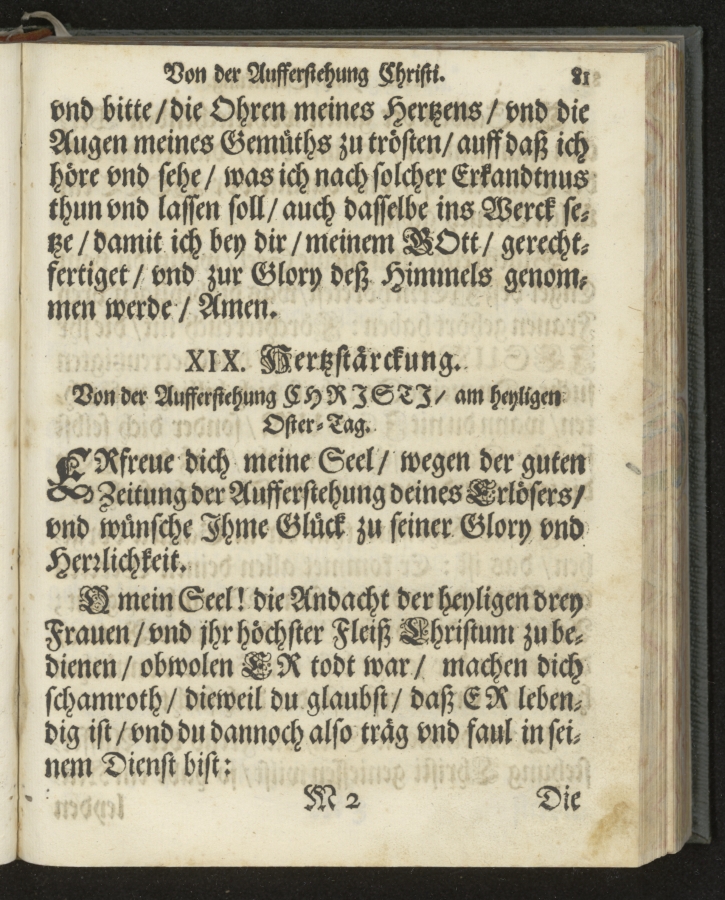 Von der Aufferstehung Christi. 81
vnd bitte / die Ohren meines Hertzens / vnd die
Augen meines Gemüths zu trösten / auff daß ich
höre vnd sehe / was ich nach solcher Erkandtnus
thun vnd lassen soll / auch dasselbe ins Werck se⸗
tze / damit ich bey dir / meinem GOtt / gerecht⸗
fertiget / vnd zur Glory deß Himmels genom⸗
men werde / Amen.
XIX. Hertzstärckung.
Von der Aufferstehung CHRISTI / am heyligen
Oster⸗Tag.
ERfreue dich meine Seel / wegen der guten
Zeitung der Aufferstehung deines Erlösers /
vnd wünsche Ihme Glück zu seiner Glory vnd
Herrlichkeit.
O mein Seel! die Andacht der heyligen drey
Frauen / vnd jhr höchster Fleiß Christum zu be⸗
dienen / obwolen ER todt war / machen dich
schamroth / dieweil du glaubst / daß ER leben⸗
dig ist / vnd du dannoch also träg vnd faul in sei⸗
nem Dienst bist:
M 2 Die